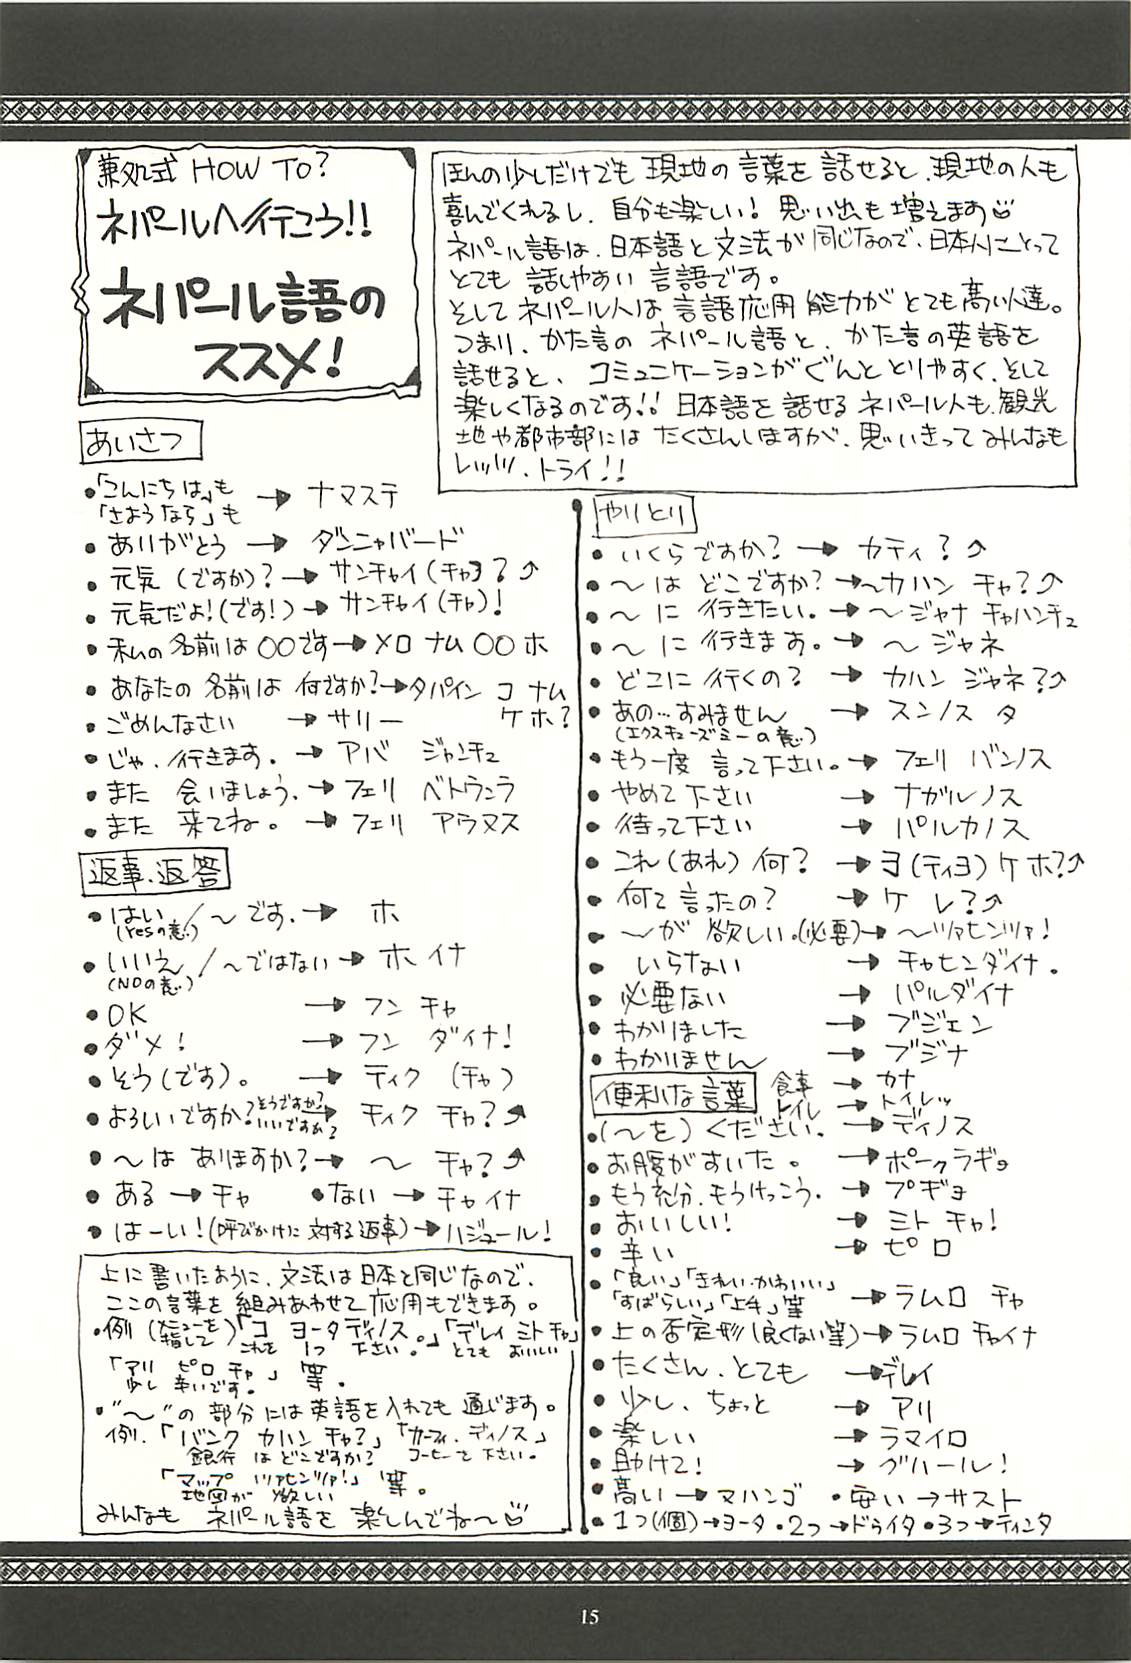 兼処式 HOW TO?
ネパールへ行こう!!
ネパール語の
ススメ!
ほんの少しだけでも現地の言葉を話せると、現地の人も
喜んでくれるし、自分も楽しい! 思い出も増えます
ネパール語は、日本語と文法が同じなので、日本人にとって
とても話しやすい言語です。
そしてネパール人は言語応用能力がとても高い人達。
つまり、かた言のネパール語と、かた言の英語を
話せると、コミュニケーションがぐんととりやすく、そして
楽しくなるのです!! 日本語を話せるネパール人も、観光
地や都市部にはたくさんいますが、思いきってみんなも
レッツ、トライ!!
あいさつ
•「こんにちは」も
「さようなら」も → ナマステ
• ありがとう → ダンニャバード
• 元気(ですか)? → サンチャイ(チャ)?↗
• 元気だよ!(です!) → サンチャイ(チャ)!
• 私の名前は○○です → メロ ナム ○○ ホ
• あなたの名前は何ですか? → タパイン コ ナム
ケホ?
• ごめんなさい → サリー
• じゃ、行きます。 → アバ ジャンチュ
• また 会いましょう。 → フェリ ベトウンラ
• また 来てね。 → フェリ アウヌス
返事、返答
• はい/~です。 → ホ
(Yesの意)
• いいえ/~ではない → ホイナ
(NOの意)
• OK → フン チャ
• ダメ! → フン ダイナ!
• そう(です)。 → ティク (チャ)
• よろしいですか? そうですか? いいですか? → ティク チャ?↗
• ~は ありますか? → ~ チャ?↗
• ある → チャ • ない → チャイナ
• はーい!(呼びかけに対する返事) → ハジュール!
上に書いたように、文法は日本と同じなので、
ここの言葉を組みあわせて応用もできます。
•例(メニューを指して)「コ ヨータ ディノス。」「デレイ ミト チャ」
これを 1つ 下さい。 とても おいしい
「アリ ピロ チャ」等。
少し 辛いです。
•"~"の部分には英語を入れても通じます。
例.「バンク カハン チャ?」「カーフィ、ディノス」
銀行 はどこですか? コーヒーを下さい。
「マップ ツァヒンツァ!」等。
地図が 欲しい
みんなも ネパール語を 楽しんでね~
やりとり
• いくらですか? → カティ?↗
• ~は どこですか? → ~カハン チャ?↗
• ~に 行きたい。 → ~ジャナ チャハンチュ
• ~に 行きます。 → ~ ジャネ
• どこに 行くの? → カハン ジャネ?↗
• あの…すみません → スンノス タ
(エクスキューズミーの意)
• もう一度 言って下さい。 → フェリ バンノス
• やめて下さい → ナガルノス
• 待って下さい → パルカノス
• これ(あれ)何? → ヨ(ティヨ)ケホ?↗
• 何て言ったの? → ケ レ?↗
• ~が 欲しい。(必要) → ~ツァヒンツァ!
• いらない → チャヒンダイナ。
• 必要ない → パルダイナ
• わかりました → ブジェン
• わかりません → ブジナ
便利な言葉
食事 → カナ
トイレ → トイレッ
•(~を)ください。 → ディノス
• お腹がすいた。 → ボークラギョ
• もう充分、もうけっこう。 → プギョ
• おいしい! → ミト チャ!
• 辛い → ピロ
•「良い」「きれい・かわいい」
「すばらしい」「上手」等 → ラムロ チャ
• 上の否定形(良くない等) → ラムロ チャイナ
• たくさん、とても → デレイ
• 少し、ちょっと → アリ
• 楽しい → ラマイロ
• 助けて! → グハール!
• 高い → マハンゴ • 安い → サスト
• 1つ(個) → ヨータ • 2つ → ドゥイタ • 3つ → ティンタ
15